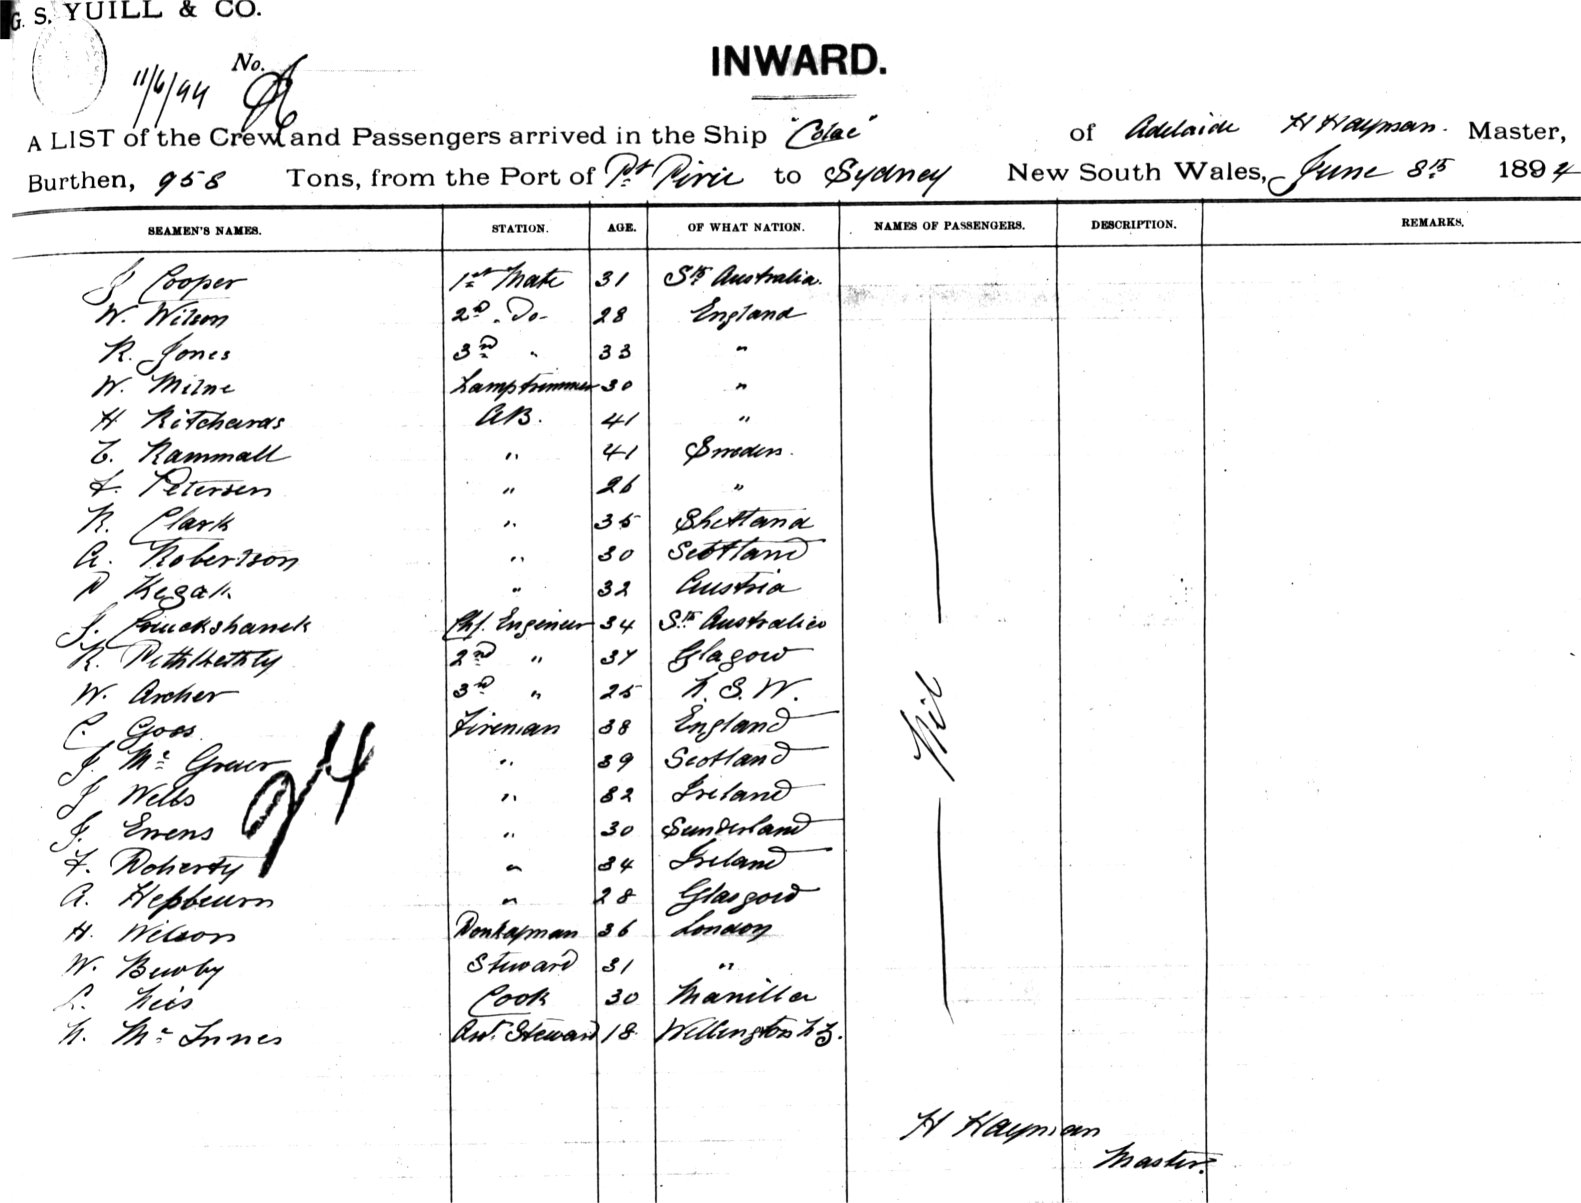 G. S. YUILL & CO.
No.
11/6/94
INWARD.
A LIST of the Crew and Passengers arrived in the Ship "Colac" of Adelaide H Hayman. Master,
Burthen, 958 Tons, from the Port of Pt Pirie to Sydney New South Wales, June 8th 1894
SEAMEN'S NAMES. STATION. AGE. OF WHAT NATION. NAMES OF PASSENGERS. DESCRIPTION. REMARKS.
J Cooper 1st Mate 31 Sth Australia.
W. Wilson 2nd Do- 28 England
R. Jones 3rd " 33 "
W. Milne Lamptrimmer 30 "
H Ritchards AB. 41 "
Rammall " 41 Sweden.
F. Petersen " 26 "
R. Clark " 35 Shetland
A. Robertson " 30 Scotland
32 Austria
J. Cruickshank Chf. Engineer 34 Sth Australia
R. 2nd " 37 Glagow
W. Archer 3rd " 25 N. S. W.
C. Goss. Fireman 38 England
J. Mc " 39 Scotland
J Wells " 32 Ireland
J. Evens " 30 Sunderland
F. Doherty " 34 Ireland
A. Hepburn " 28 Glasgow
H. Wilson Donkeyman 36 London
W. Steward 31 "
Cook 30 Manilla
N. Mc Innes Ast. Steward 18 Wellington N Z.
Nil
24
H Hayman
Master.